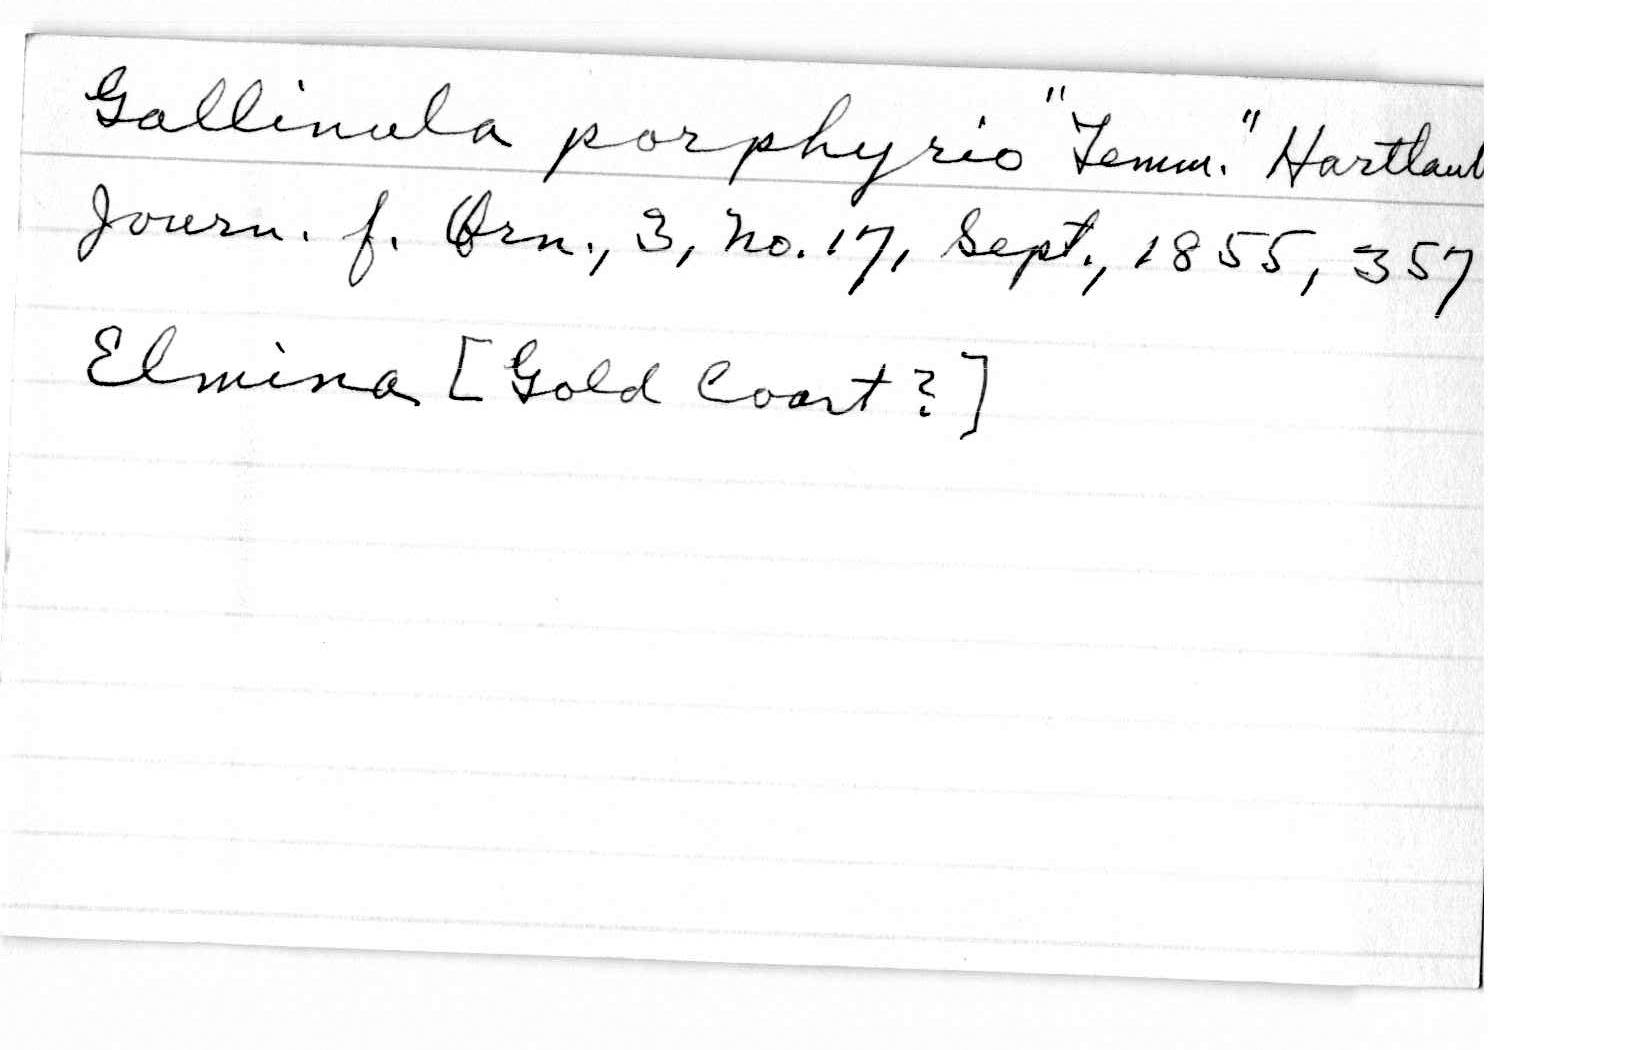 Gallinula porphyrio "Temm." Hartlaub
Journ. f. Orn., 3, no. 17, Sept., 1855, 357
Elmina [Gold Coast?]